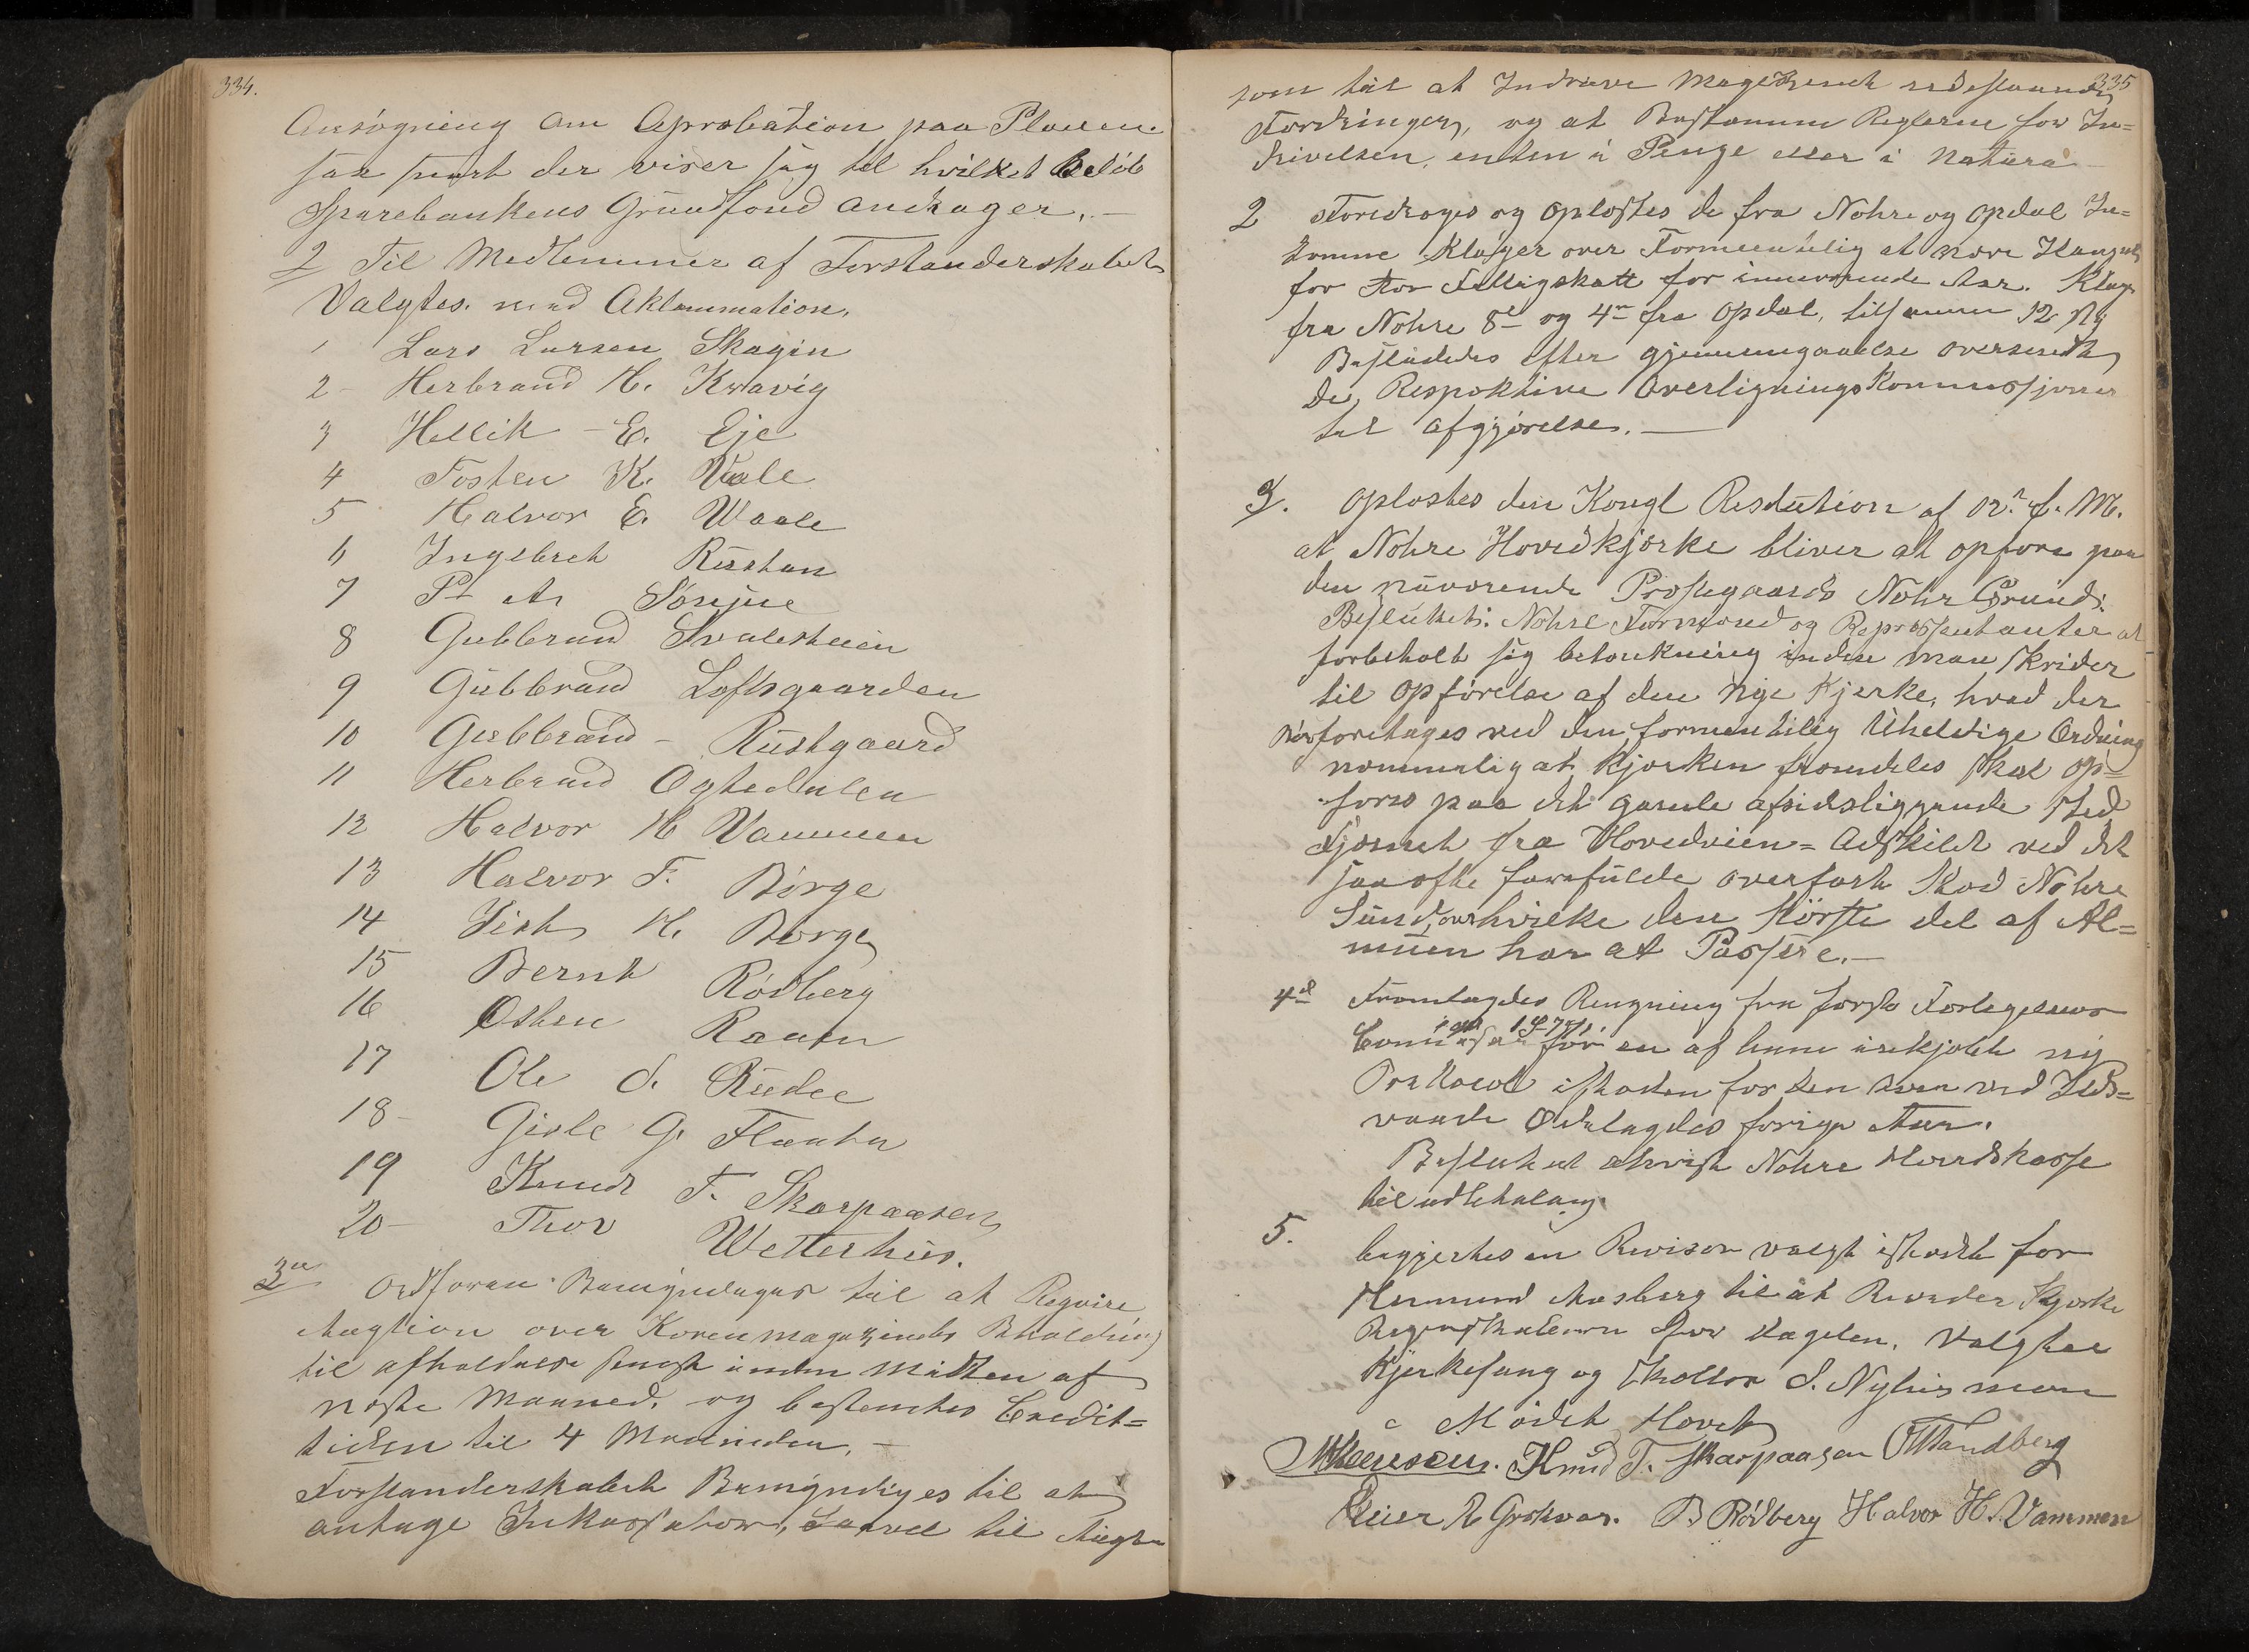 334.
Ansøgning om Aprobation paa Planen.
saa snart der viser sig til hvilket Beløb
Sparebankens Grundfond andrager. —
2 Til Medlemmer af Forstanderskabet
Valgtes med Aklammation.
1 Lars Larsen Skagin
2 - Herbrand H. Kravig
3 Hellik - E. Eje
4 Tosten K. Vaale
5 Halvor E. Waale
6 Ingebret Rustan
7 P. A. Sønjue
8 Gulbrand Traaesteien
9 Gulbrand Loftsgaarden
10 Gulbrand - Rustgaard
11 Herbrand Ogtedalen
12 Halvor H Vammen
13 Halvor T. Børge
14 H. Børge
15 Bernt Rødberg
16 Østen Raaen
17 Ole S. Rudee
18 - Gisle G. Flaata
19 Knud T. Skarpaasen
20 - Thor Wetterhus.
3 Ordføren Bemyndiges til at Reqvire
Augtion over Korenmagazinets Beholdning
til afholdelse senest innen Midten af
næste Maaned, og bestemtes Credit=
tiden til 4 Maaneder. —
Forstanderskabet Bemyndiges til at
antage Inkassator, saavel til Augtion
335
som til at Inddrive Magazinets udestaaende
Fordringer, og at Bestemme Reglerne for In=
drivelsen, enten i Penge eller i Natura
2 Foredroges og Oplæstes de fra Nohre og Opdal In=
komne Klager over Formeentelig at være
for stor Fattigskatt for inneværende Aar. Klager
fra Nohre 8 og 4 fra Opdal, tilsammen 12
Besluttedes efter gjennemgaaelse oversendt
de Respektive Overligningskommissjoner
til afgjørelse. —
3. Oplæstes den Kongl Resolution af 12 f. M.
at Nohre Hovedkjærke bliver at opføre paa
den nuværende Præstegaards Nohr Grund.
Beslutted: Nohre Formænd og Repræsentanter at
forbeholdt sig betænkning inden man skrider
til opførelse af den nye Kjærke, hvad der
bør foretages ved den formentelig Uheldige Ordning
nemmelig at kjærken fremdeles skal op=
føres paa det gamle afsidesliggende sted
Fjærnet fra Hovedveien = Adskildt ved det
saa ofte farefulde overfart Nohre
Sund, over hvilke den største del af Al=
muen har at Passere. —
4 Fremlagdes Rengning fra første Forligelses
Comission for en af hem inkjøbt ny
Protocol isteden for den som ved Ilds=
vaade Ødelagdes forrige Aar.
Besluttet anvist Nohre Herredskasse
til udbetaling.
5. begjertes en Revisor valgt istedet for
Aasberg til at Revider Kjærke
Regnskaberne for Dagelen. Valgtes
Kjerkesang og skoller S. Nyhus
Mødet Hævet
Knud T. Skarpaasen O Wandberg
B Rødberg Halvor H. Vammen